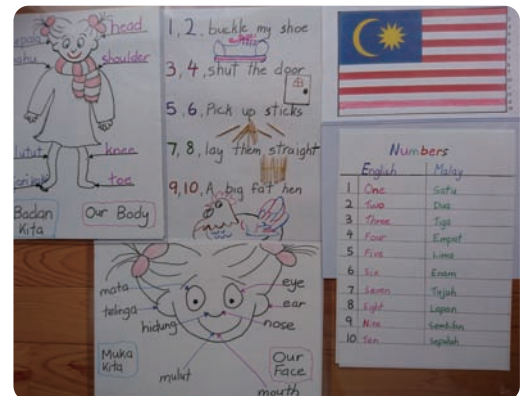 head
shoulder
lutut
knee
toe
Badan
Kita
Our Body
1, 2, buckle my shoe
3, 4, shut the door
5, 6, Pick up sticks
7, 8, lay them straight
9, 10, A big fat hen
Numbers
English Malay
1 One Satu
2 Two Dua
3 Three Tiga
4 Four Empat
5 Five Lima
6 Six Enam
7 Seven Tujuh
8 Eight Lapan
9 Nine
10 Ten Sepuluh
mata
eye
telinga
ear
hidung
nose
Muka
Kita
mulut
mouth
Our
Face